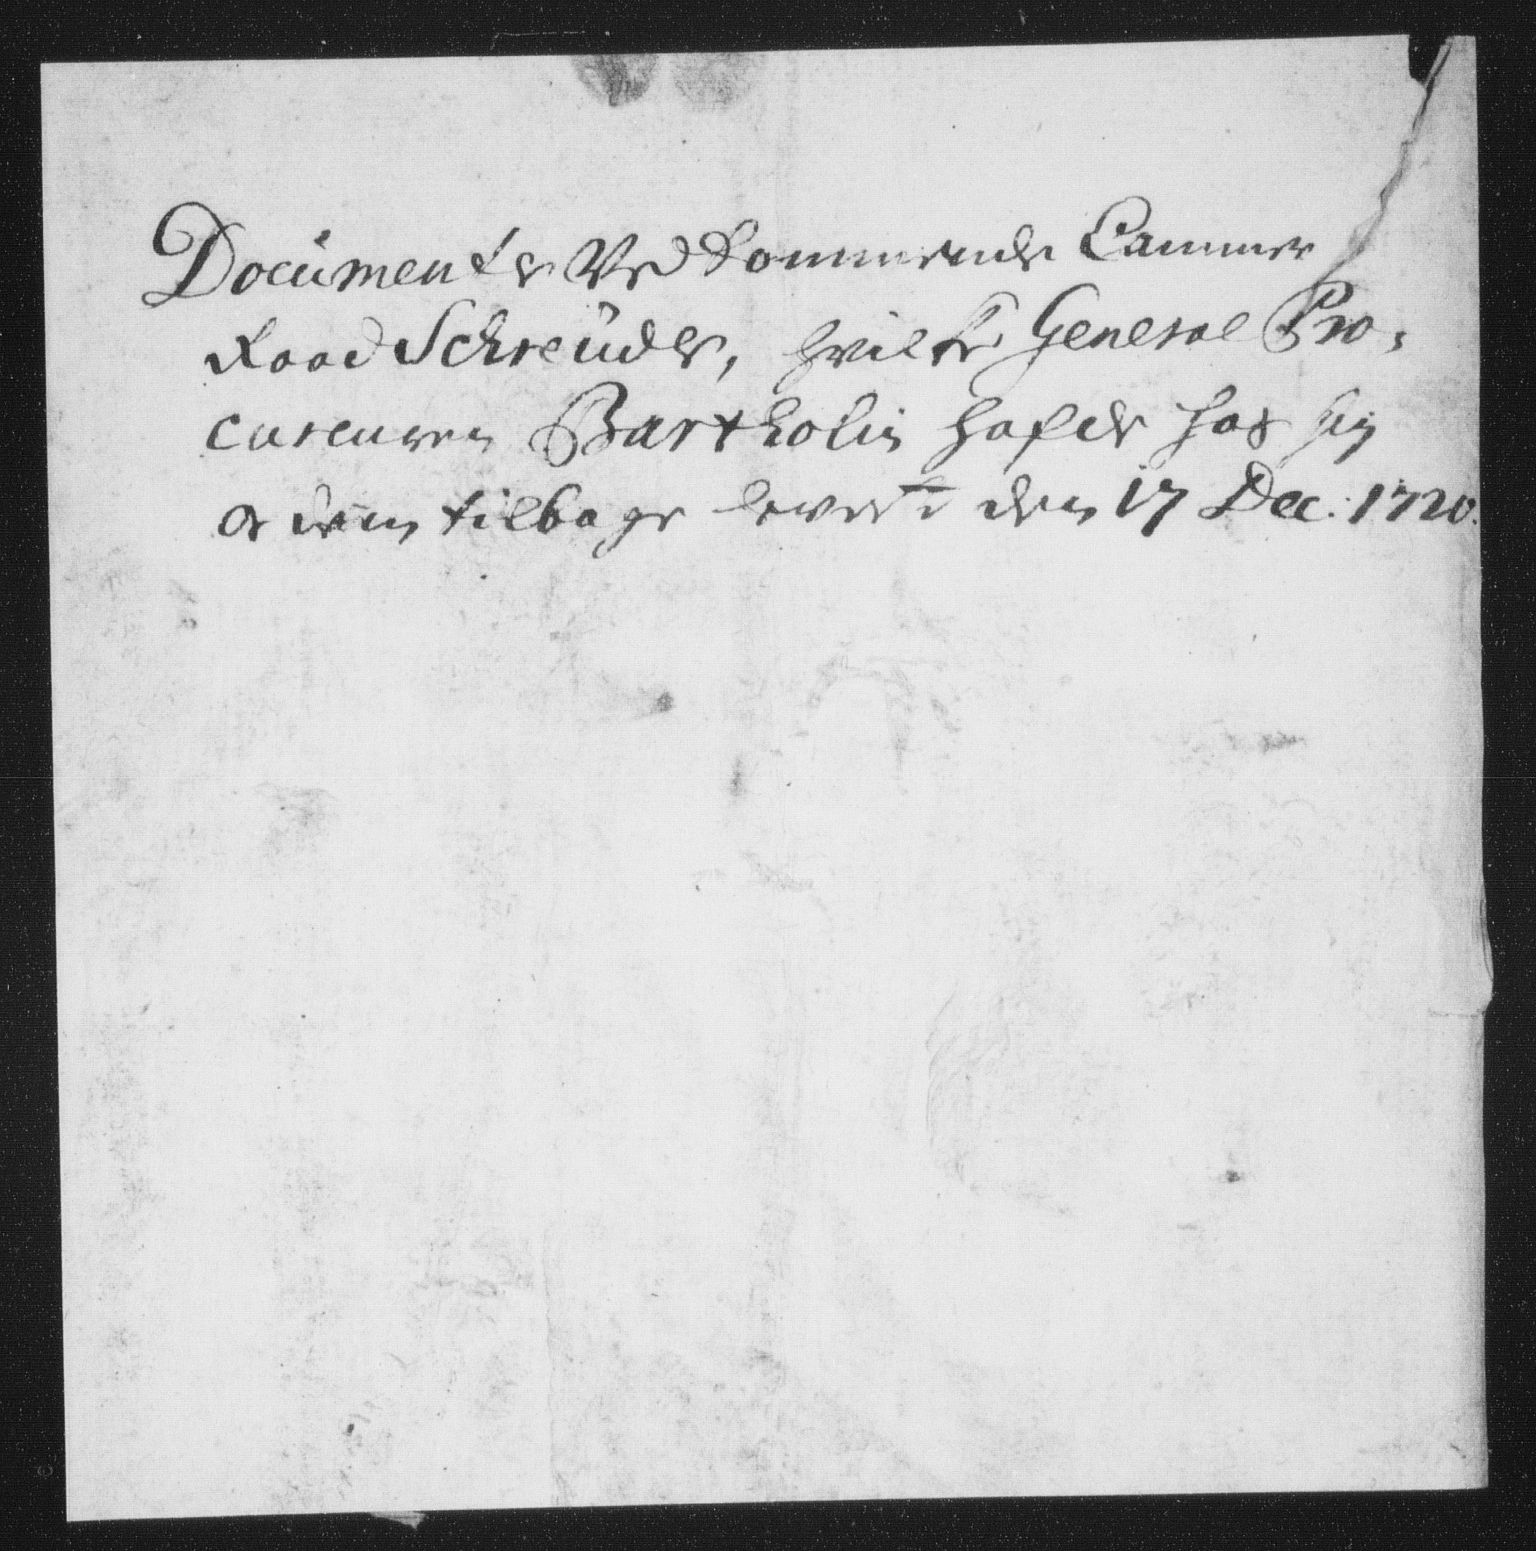 Documenter Vedkommende Cammer
Raad Schreüder, hvilke General Pro-
cureuren Bartholin hafde hos sig
og dem tilbage leverte den 17 Dec: 1720.